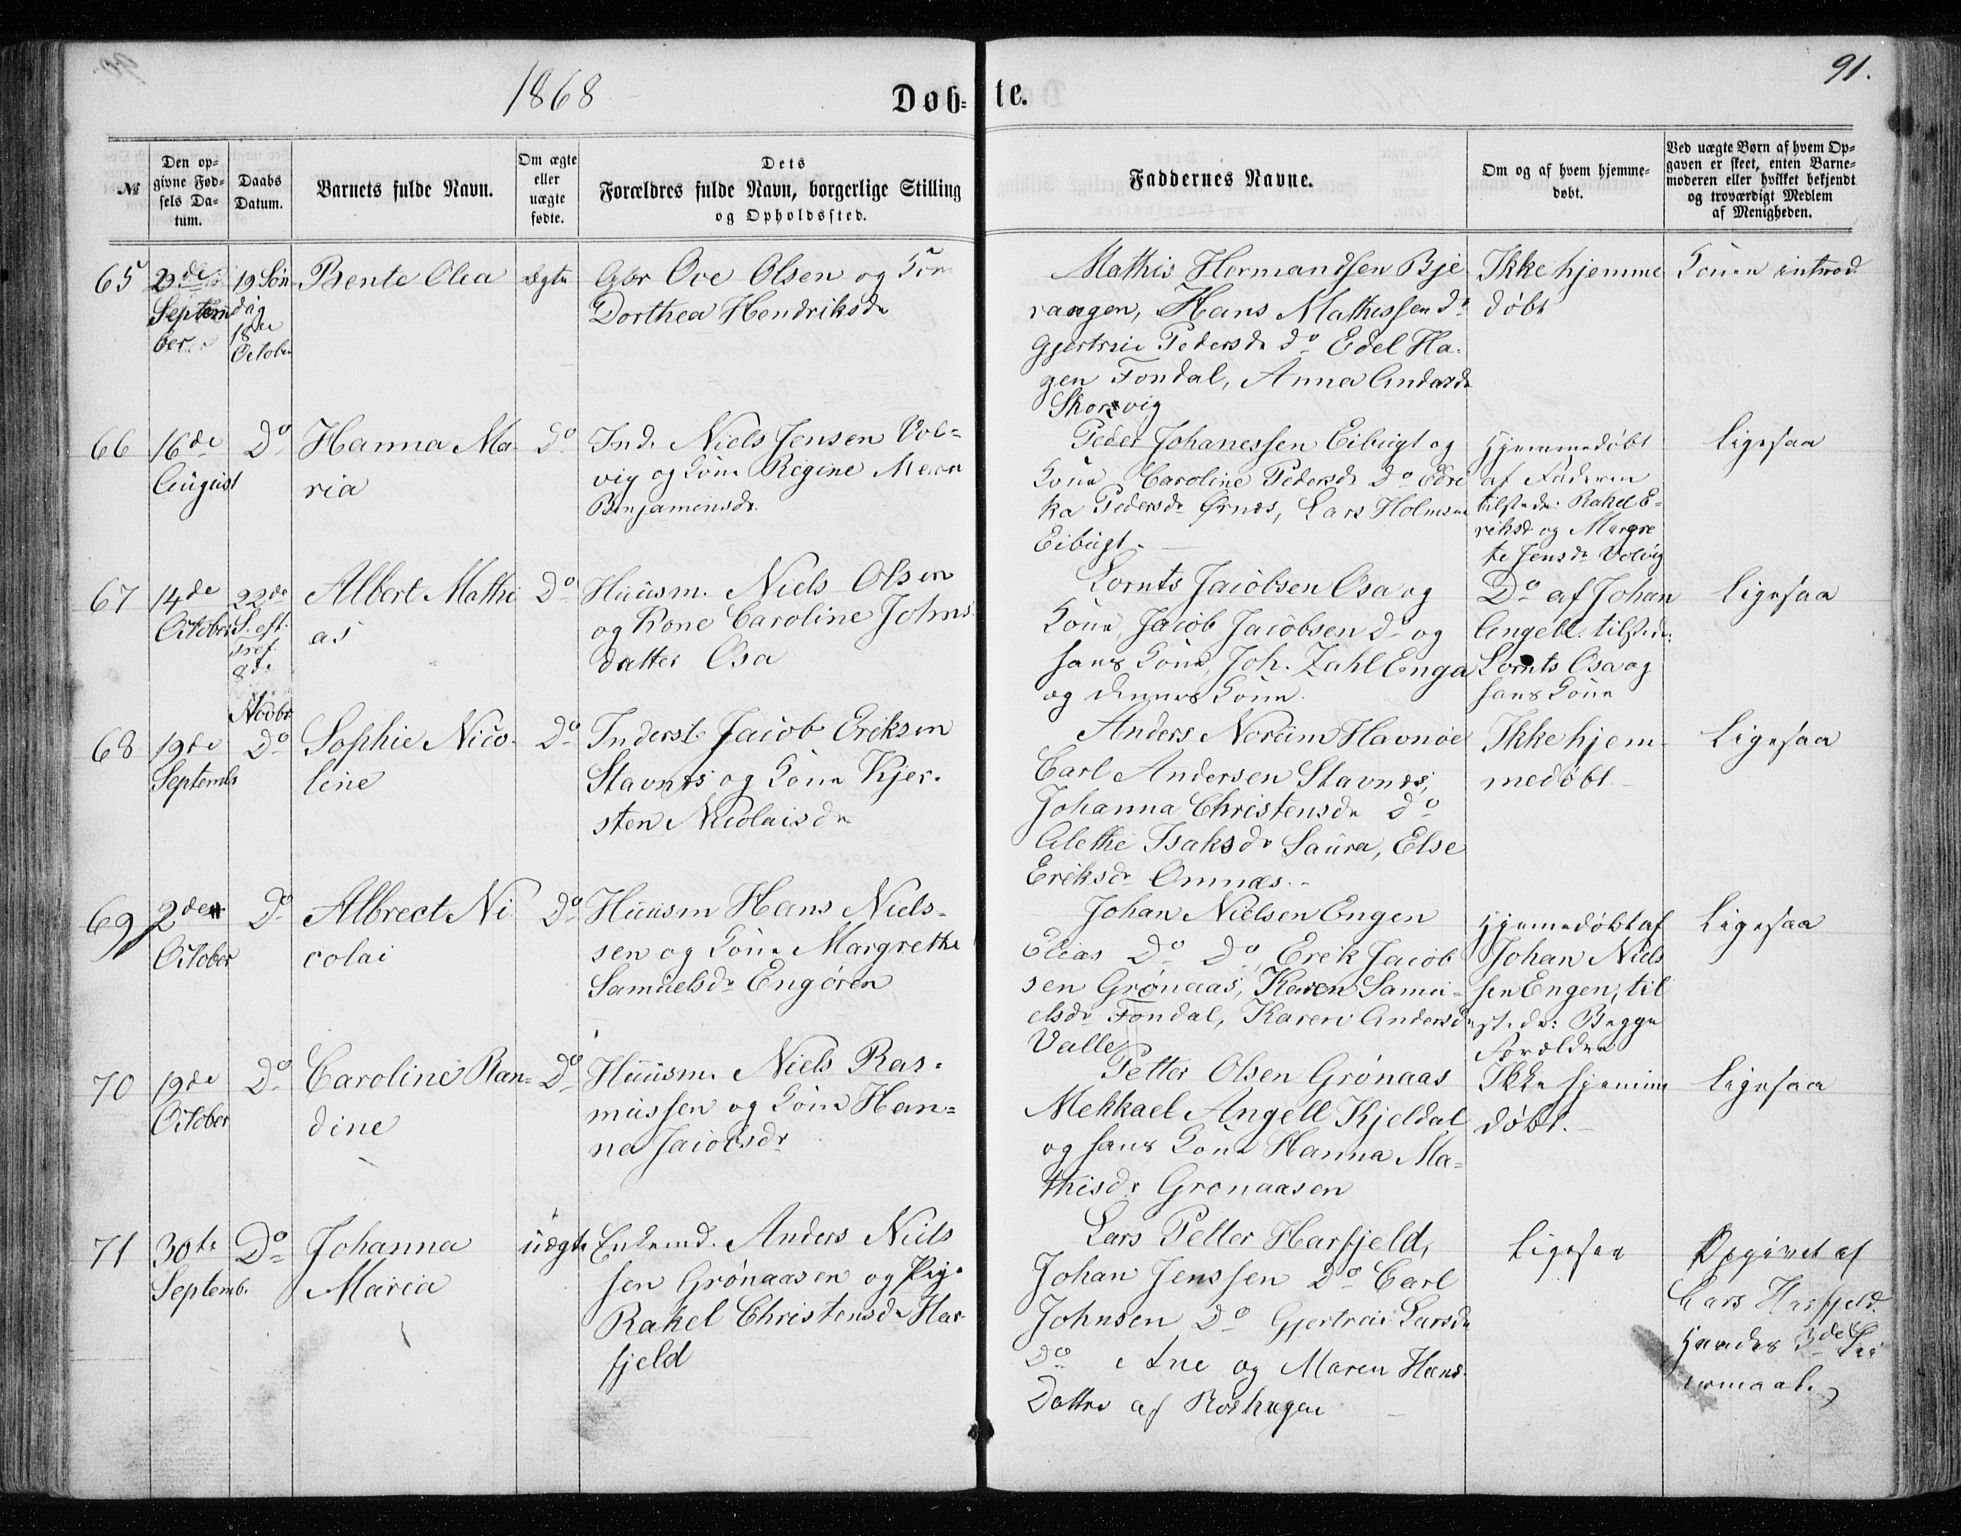 1868
Døb-
te.
91.
№
Den op-
givne Fød-
sels Da-
tum.
Daabs
Datum.
Barnets fulde Navn.
Om ægte
eller
uægte
fødte.
Dets
Forældres fulde Navn, borgerlige Stilling
og Opholdssted.
Faddernes Navne.
Om og af hvem hjemme-
døbt.
Ved uægte Børn af hvem Op-
gaven er skeet, enten Barne-
moderen eller hvilket bekjendt
og troværdigt Medlem
af Menigheden.
65
2de
Septem
ber
19 Søn
dag
18de
October
Bente Olea
ægte
Gbr Ove Olsen og Kone
Dorthea Hendriksdr
Mathis Hermandsen Bje
rangen, Hans Mathissen do
Gjertrue Pedersdr do Edel Ha-
gen Fondal, Anna Andersdr
Skorvig
Ikke hjemme
døbt
Konen introd
66
16de
August
Do
Hanna Ma-
ria
Do
Ind. Niels Jensen Vol-
vig og Kone Regine Meren
Benjaminsdr.
Peder Johanessen Eibugt og
Kone Caroline Pedersdr do Edri
ka Pedersdr Ørnes, Lars Holmsen
Eibugt.
Hjemmedøbt
af Faderen
tilstede: Rakel E-
riksd. og Margre
te Jensdr Volvig
Ligesaa
67
14de
October
22de
S. eft.
Tref.
8de
Novbr
Albert Mathi
as
Do
Huusm. Niels Olsen
og Kone Caroline Johns-
datter Osa
Lornts Jacobsen Osa og
Kone, Jacob Jacobsen do og
hans Kone, Joh. Zahl Enga
og dennes Kone.
Do af Johan
Angell. tilsted:
Lornts Osa og
hans Kone
Ligesaa
68
19de
Septembr
Do
Sophie Nico-
line
Do
Inderst Jacob Eriksen
Stavnes og Kone Kjer-
sten Nicolaisdr
Anders Norum Havnøe
Carl Andersen Stavnes,
Johanna Christensdr do
Alethe Isaksdr Saura, Else
Eriksdr Omnæs.
Ikke hjem-
medøbt.
Ligesaa
69
2den
October
Do
Albrect Ni
colai
Do
Huusm Hans Niels-
sen og Kone Margrethe
Samuelsdr Engøren
Johan Nielsen Engen
Elias Do Do, Erek Jacob
sen Grønaas, Karen Samu-
elsdr Fondal, Karen Andersd
Valle
Hjemedøbt af
Johan Niels
sen Engen, til
stede: Begge
Forældre
Ligesaa
70
19de
October
Do
Caroline Ran-
dine
Do
Huusm. Niels Ras-
mussen og Kone Han-
na Jacobsdr
Petter Olsen Grønaas
Mekkael Angell Kjeldal
og hans Kone Hanna Ma-
thisdr Grønaasen
Ikke hjemme
døbt.
Ligesaa
71
30te
Septemb.
Do
Johanna
Maria
uægte
Enkemd. Anders Niels
sen Grønaasen og Pige
Rakel Christensdr Har-
fjeld
Lars Petter Harfjeld,
Johan Jenssen Do Carl
Johnsen Do Gjertrue Larsdr
Do Ane og Maren Hans-
Dottre af Roshagen
Ligesaa
Opgivet af
Lars Harfjeld.
Hendes 3de Lei
ermaal.